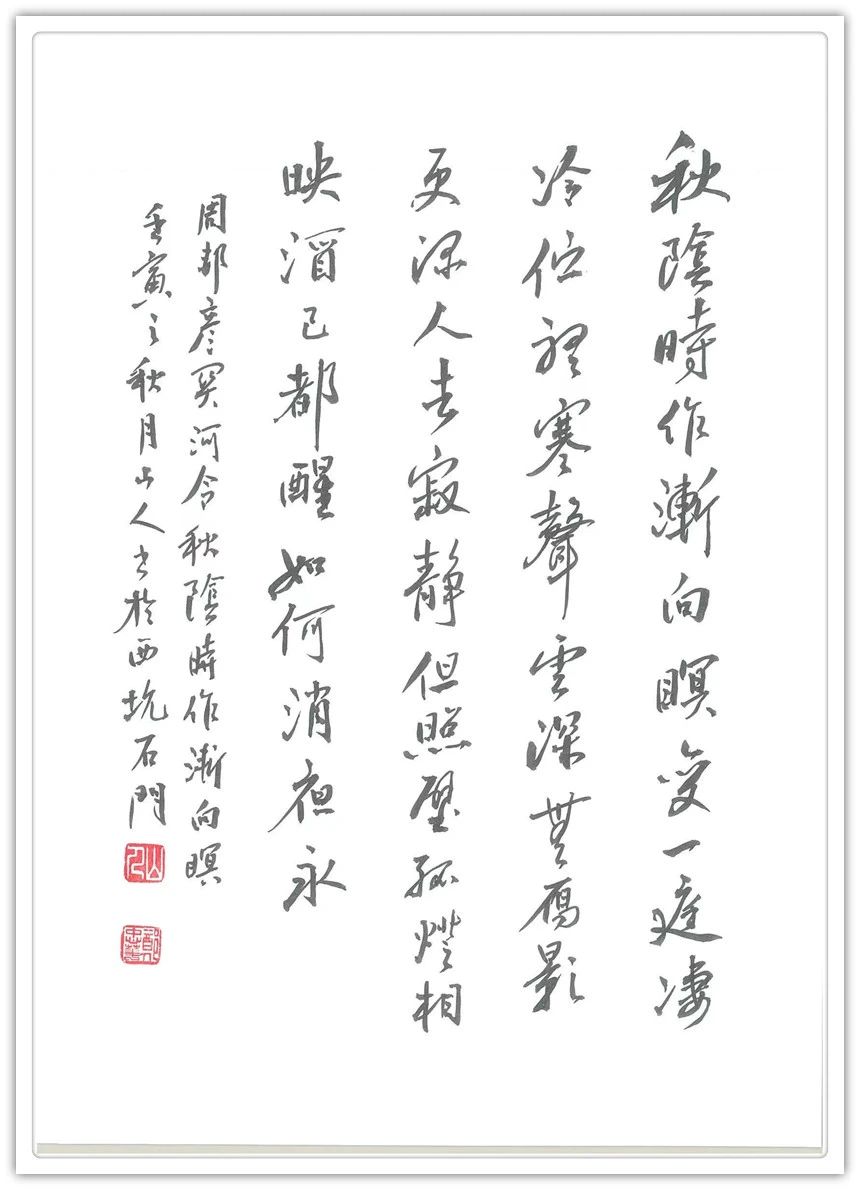 秋陰時作漸向暝變一庭凄
冷佇聽寒聲雲深無鴈影
更深人去寂静但照壁孤燈相
映酒已都醒如何消夜永
周邦彥関河令秋陰時作漸向暝
壬寅之秋月山人書於西坑石門
山人